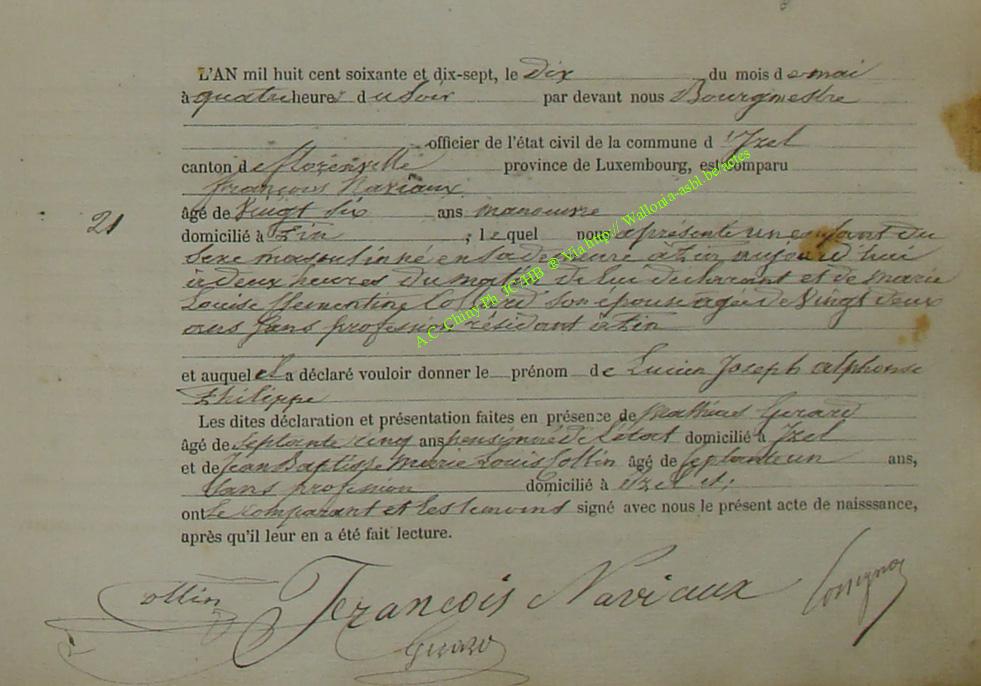 L'AN mil huit cent soixante et dix-sept, le dix du mois de mai
à quatre heures du soir par devant nous Bourgmestre
officier de l'état civil de la commune d'Izel
canton de florenville province de Luxembourg, est comparu
françois Naviaux
21
âgé de Vingt six ans manouvre
domicilié à Pin ; lequel nous a présenté un enfant du
sexe masculin né en sa demeure à Pin aujourd'hui
à deux heures du matin de lui déclarant et de marie
Louise Clementine son épouse agée de Vingt deux
ans sans profession résidant à Pin
et auquel il a déclaré vouloir donner le prénom de Lucien Joseph alphonse
Philippe
Les dites déclaration et présentation faites en présence de Mathieu Gerard
âgé de septante cinq ans pensionné de l'état domicilié à Izel
et de Jean Baptiste Marie Louis Collin âgé de septante un ans,
sans profession domicilié à Izel et;
ont le comparant et les temoins signé avec nous le présent acte de naisssance,
après qu'il leur en a été fait lecture.
Collin François Naviaux
Gerard
A.C. Chiny Ph JC/HB ® Via http:// Wallonia-asbl.be/actes